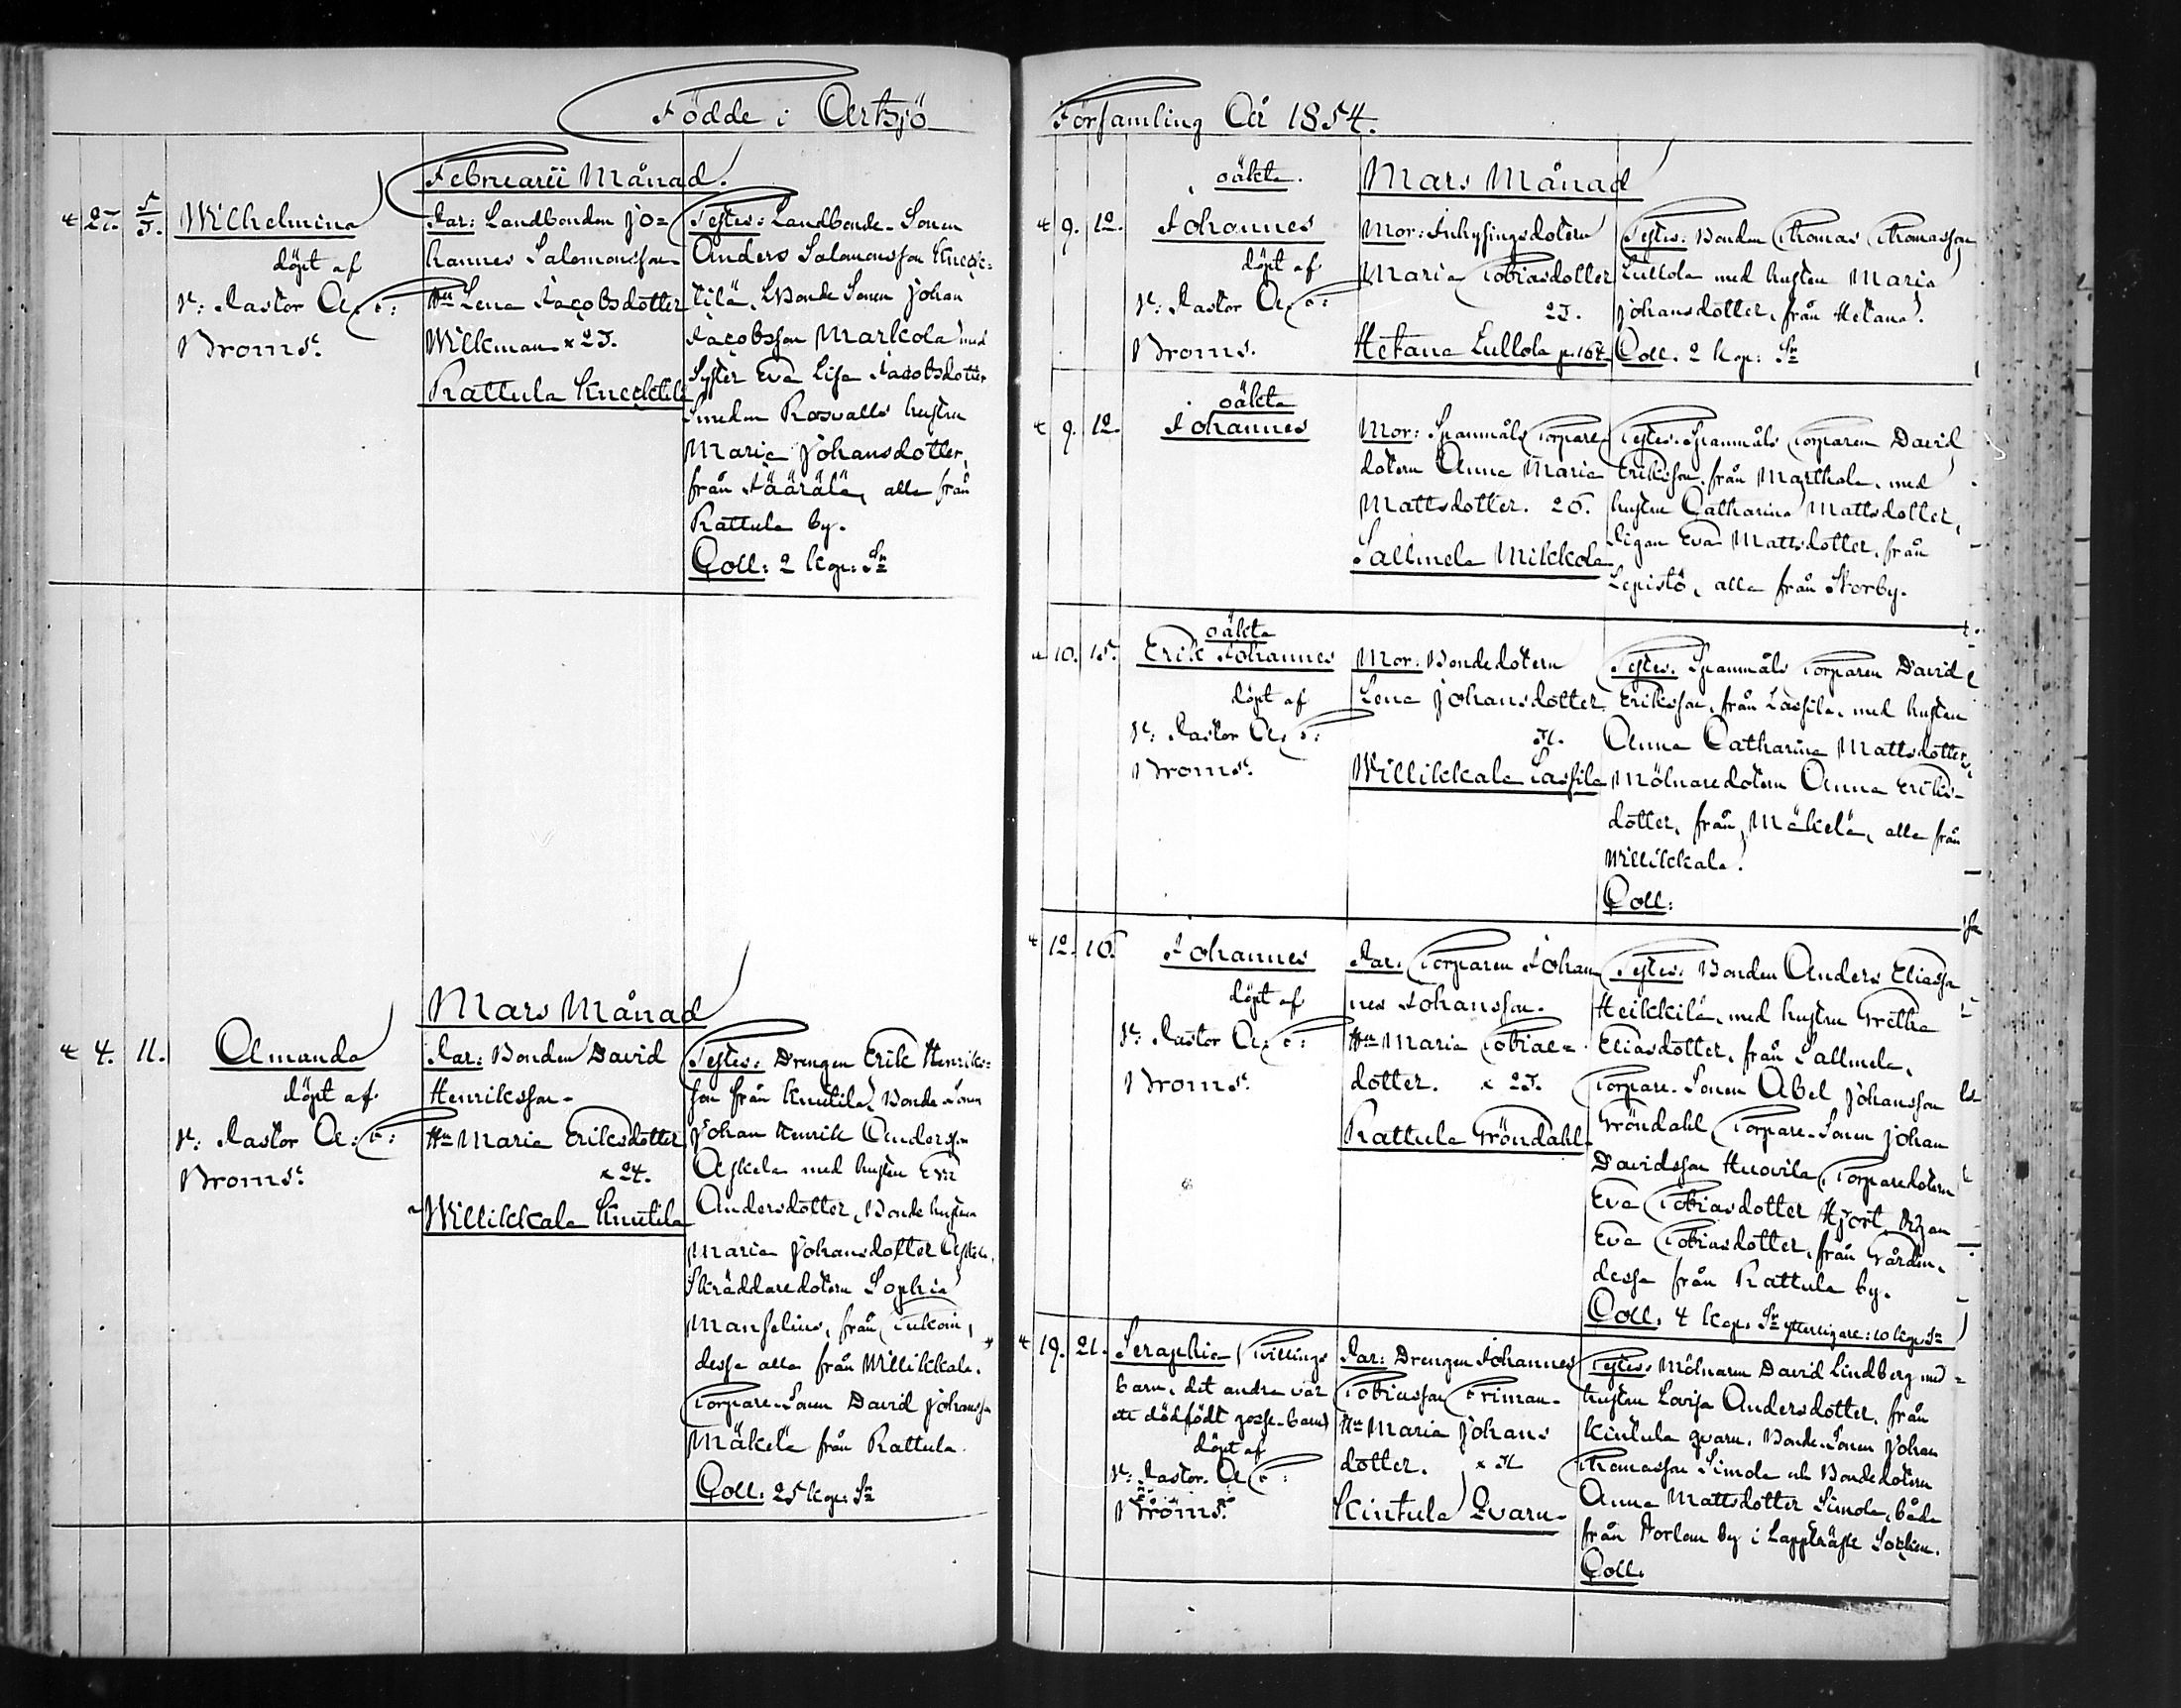 Födde i Artsjö
Februarii Månad.
27. 5/3. Wilhelmina
döpt af
v: Pastor A. F:
Broms:
Far: Landbonden Jo=
hannes Salomonsson
Hu Lena Jacobsdotter
Wilkman x 23.
Rattula Knecktilä
Testes: Landbonde-Sonen
Anders Salomonsson Kneck=
tilä, LBonde Sonen Johan
Jacobsson Markola med
Syster Eva Lisa Jacobsdotter
Smeden Rosvalls hustru
Maria Johansdotter,
från Jäärälä, alla från
Rattula by.
Coll: 2 kop: Sr
Mars Månad
4. 11. Amanda
döpt af
v: Pastor A. F:
Broms:
Far: Bonden David
Henriksson
Hu Maria Eriksdotter
x 24.
Willikkala Knutila
Testes: Drengen Erik Henriks=
son från Knutila, Bonde Sonen
Johan Henrik Andersson
Askela med hustru Eva
Andersdotter, Bonde hustrun
Maria Johansdotter Askela,
Skräddaredotern Sophia
Manselius, från Tukain,
dessa alla från Willikkala.
Torpare-Sonen David Johansson
Mäkelä från Rattula.
Coll: 25 kop: Sr
Församling År 1854.
Mars Månad
oäkta.
9. 12. Johannes
döpt af
v: Pastor A. F:
Broms.
Mor: Inhysingsdotern
Maria Tobiasdotter
23.
Hetana Lullola p. 164
Testes: Bonden Thomas Thomasson
Lullola med hustru Maria
Johansdotter, från Hetana.
Coll. 2 kop: Sr
oäkta
9. 12. Johannes
Mor: Spanmåls Torpare
dotern Anna Maria
Mattsdotter. 26.
Salmela Mikkola
Testes: Spanmåls Torparen David
Eriksson, från Marthola, med
hustru Catharina Mattsdotter,
Pigan Eva Mattsdotter, från
Lepistö, alla från Storby.
oäkta
10. 15. Erik Johannes
döpt af
v: Pastor A. F:
Broms:
Mor: Bondedotern
Lena Johansdotter
Willikkala Lassila
Testes: Spanmåls Torparen David
Eriksson, från Lassila, med hustru
Anna Catharina Mattsdotter,
Mölnaredotern Anna Eriks-
dotter, från Mäkelä, alla från
Willikkala.
Coll:
12. 16. Johannes
döpt af
v: Pastor A. F:
Broms:
Far: Torparen Johan
nes Johansson.
Hu Maria Tobiae=
dotter. x 23.
Rattula Gröndahl
Testes: Bonden Anders Eliasson
Heikkilä, med hustru Gretha
Eliasdotter, från Sallmela,
Torpare-Sonen Abel Johansson
Gröndahl, Torpare-Sonen Johan
Davidsson Huovila, Torparedotern
Eva Tobiasdotter Hjort, Pigan
Eva Tobiasdotter, från Gården,
dessa från Rattula by.
Coll. 4 kop. Sr ytterligare: 10 kop. Sr
19. 21. Seraphia (Tvillings
barn, det andra var
ett dödfödt gosse-barn)
döpt af
v: Pastor A. F:
Broms:
Far: Drengen Johannes
Tobiasson Friman.
Hu Maria Johans
dotter.
Kintula Qvarn
Testes: Mölnaren David Lindberg med
hustru Lovisa Andersdotter, från
Kintula qvarn, Bonde-Sonen Johan
Thomasson Simola och Bondedotern
Anna Mattsdotter Simola, båda
från Porlom by i Lappträsk Sochen.
Coll.